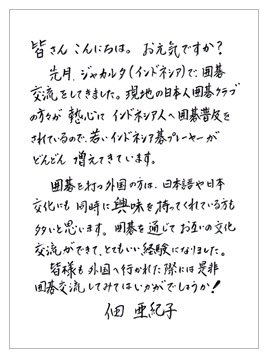 皆さん こんにちは。お元気ですか？
先月、ジャカルタ(インドネシア)で、囲碁
交流をしてきました。現地の日本人囲碁クラブ
の方々が 熱心に インドネシア人へ囲碁普及を
されているので、若いインドネシア碁プレーヤーが
どんどん 増えてきています。
囲碁を打つ外国の方は、日本語や日本
文化にも 同時に興味を持ってくれている方も
多いと思います。囲碁を通じてお互いの文化
交流ができて、とてもいい経験になりました。
皆様も外国へ行かれた際には是非
囲碁交流してみてはいかがでしょうか！
佃 亜紀子